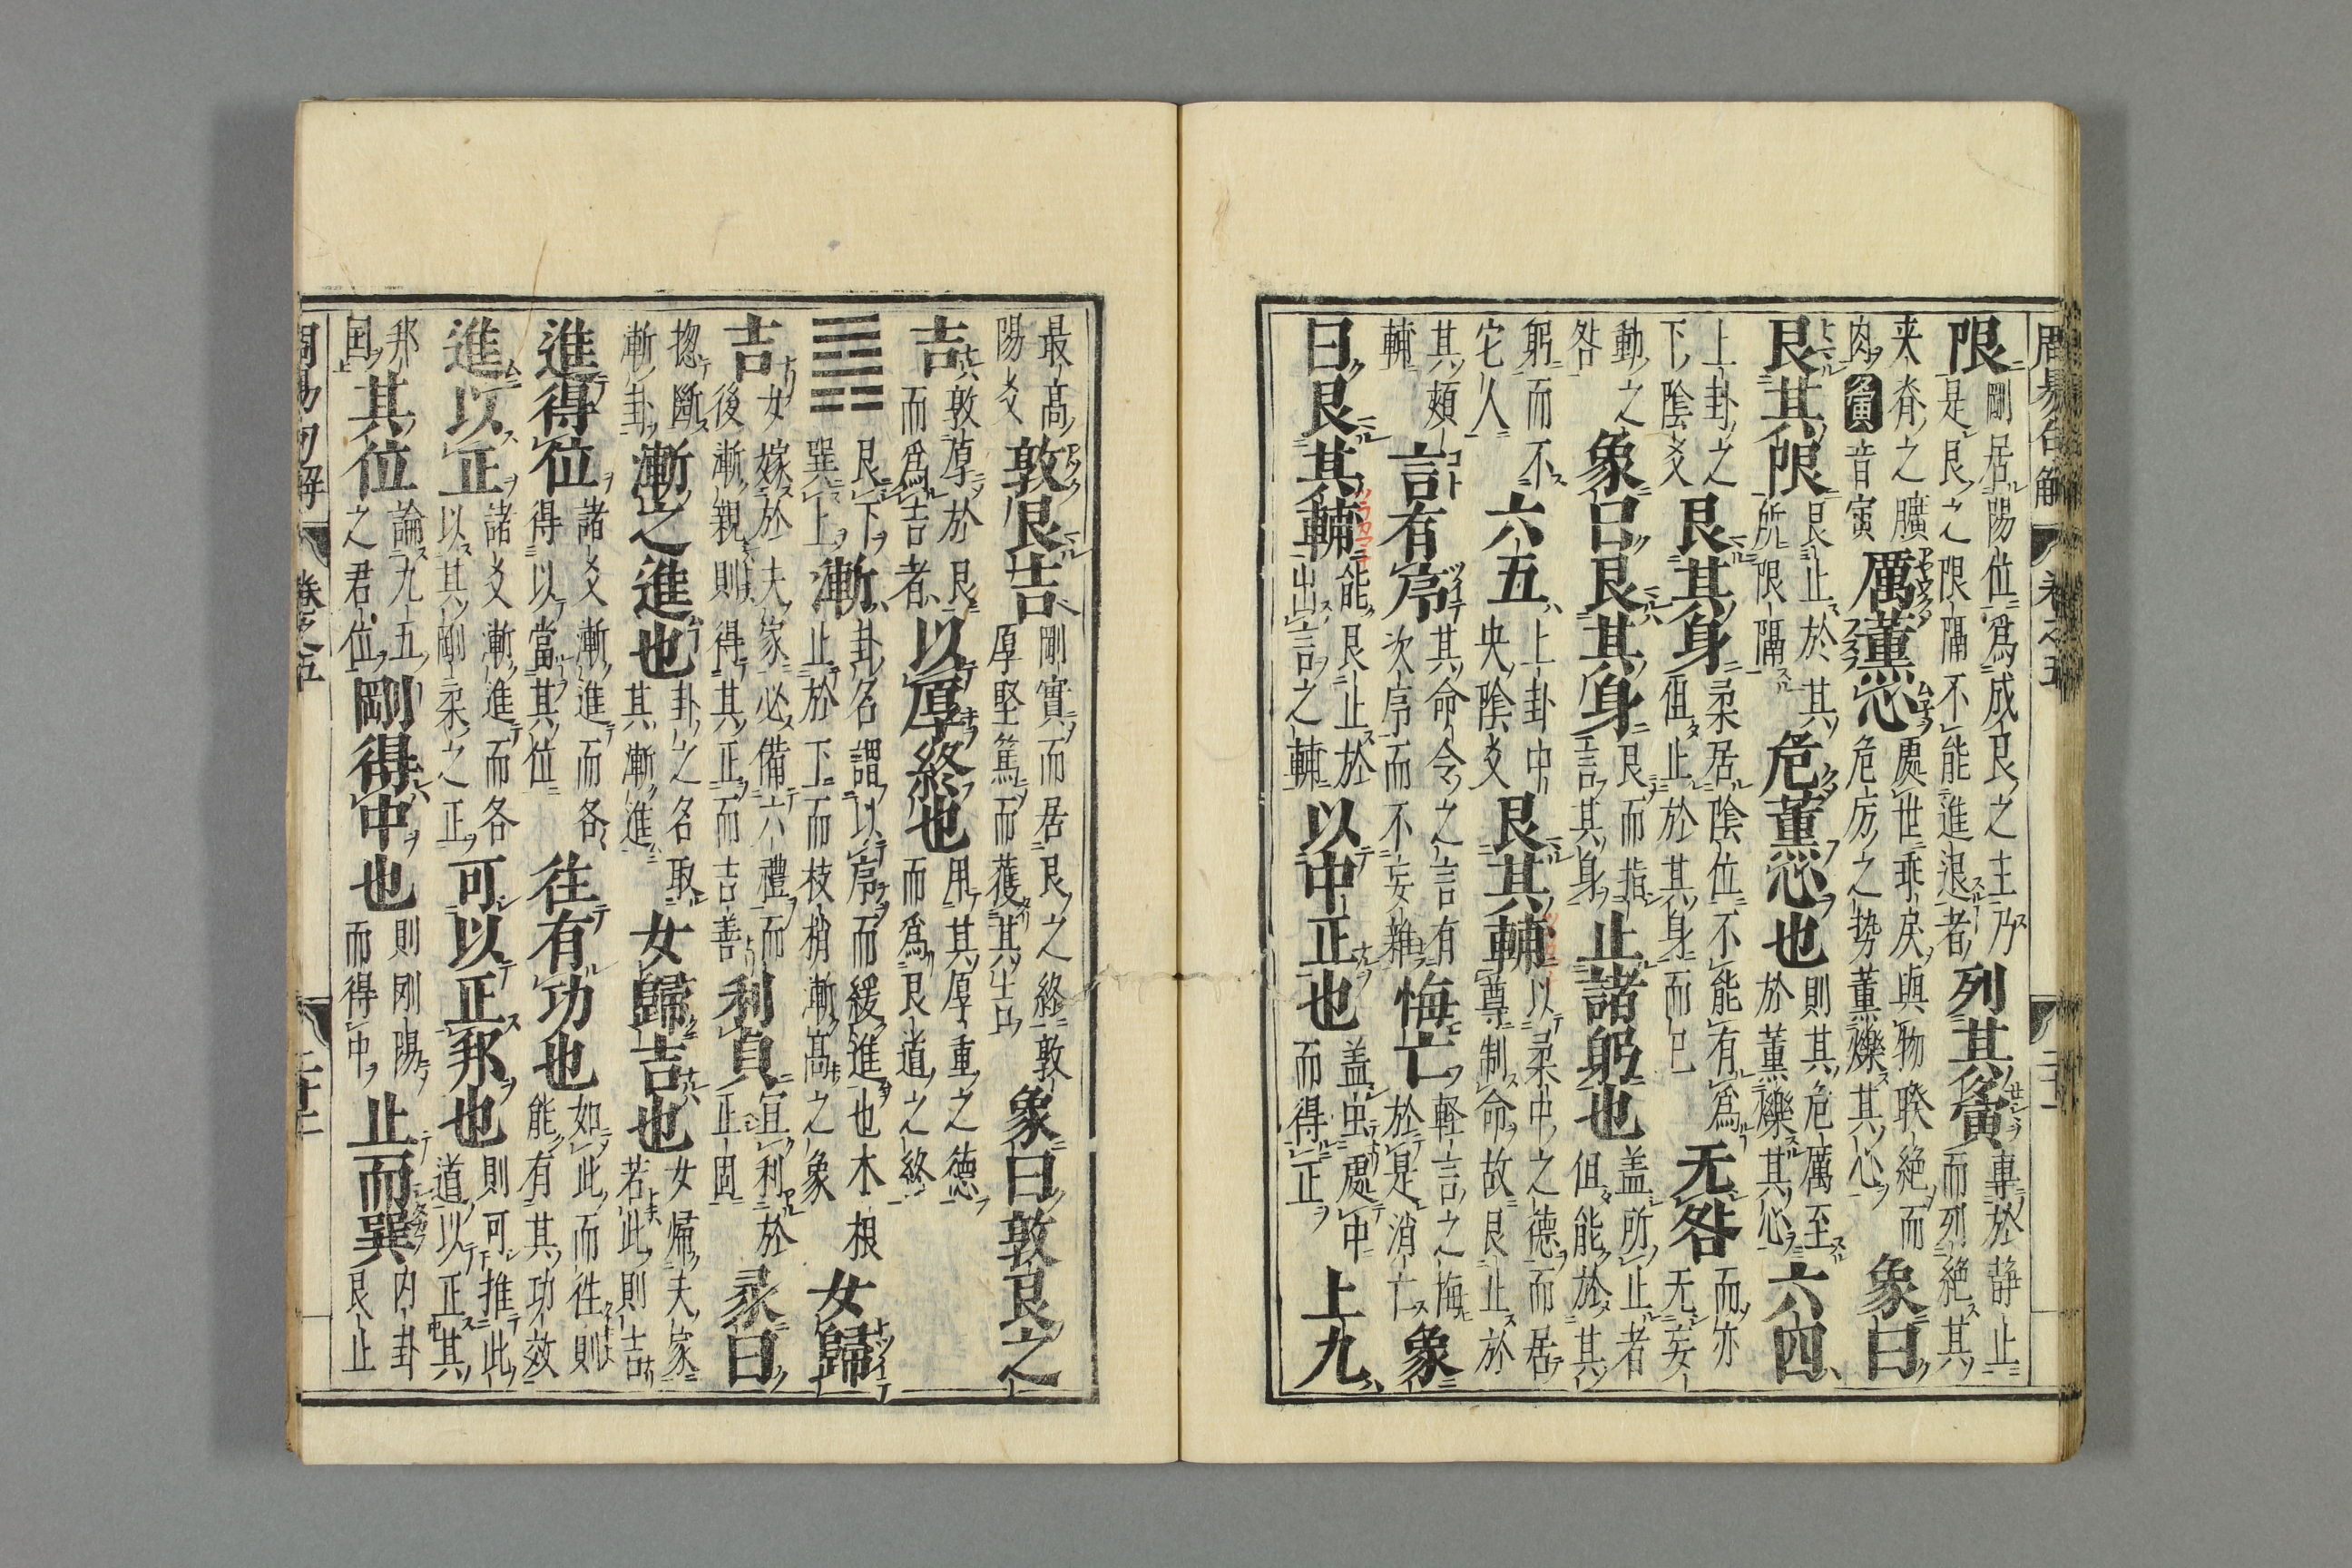 周易句解 卷之五 二十一
限剛居陽位為成艮之主乃是艮之限隔不能進退者列其夤專於静止而列絶其
来脊之肉夤音寅厲薫心處世乖戻與物暌絶而危厉之势薫爍其心象曰
艮其限艮止於其所限隔危薫心也則其危厲至於薫爍其心六四
上卦之下陰爻艮其身柔居陰位不能有為但止於其身而已无咎而亦无妄
動之咎象曰艮其身艮而指言其身止諸躬也盖所止者但能於其
躬而不它人六五上卦中央陰爻艮其輔以柔中之德而居尊制命故艮止於
其頰輔言有序其命令之言有次序而不妄雜悔亡軽言之悔於是消亡象
曰艮其輔能艮止於出言之輔以中正也盖虫處中而得正上九
最高陽爻敦艮吉剛實而居艮之終敦厚堅篤而獲其吉象曰敦艮之
吉敦厚於艮而為吉者以厚終也用其厚重之德而為艮道之終
䷴艮下巽上漸卦名謂以序而緩進也木根止於下而枝梢漸高之象女歸
吉女嫁於夫家必備六禮而後漸親則得其正而吉善利貞宜利於正固彖曰
揔斷漸卦漸之進也卦之名取其漸進女歸吉也女帰夫家若此則吉
進得位諸爻漸進而各得以當其位往有功也如此而徃則能有其功效
進以正諸爻漸進而各以其剛柔之正可以正邦也則可推此道以正其
邦国其位論九五之君位剛得中也則剛陽而得中止而巽内卦艮止
周易句解 卷之五 二十二